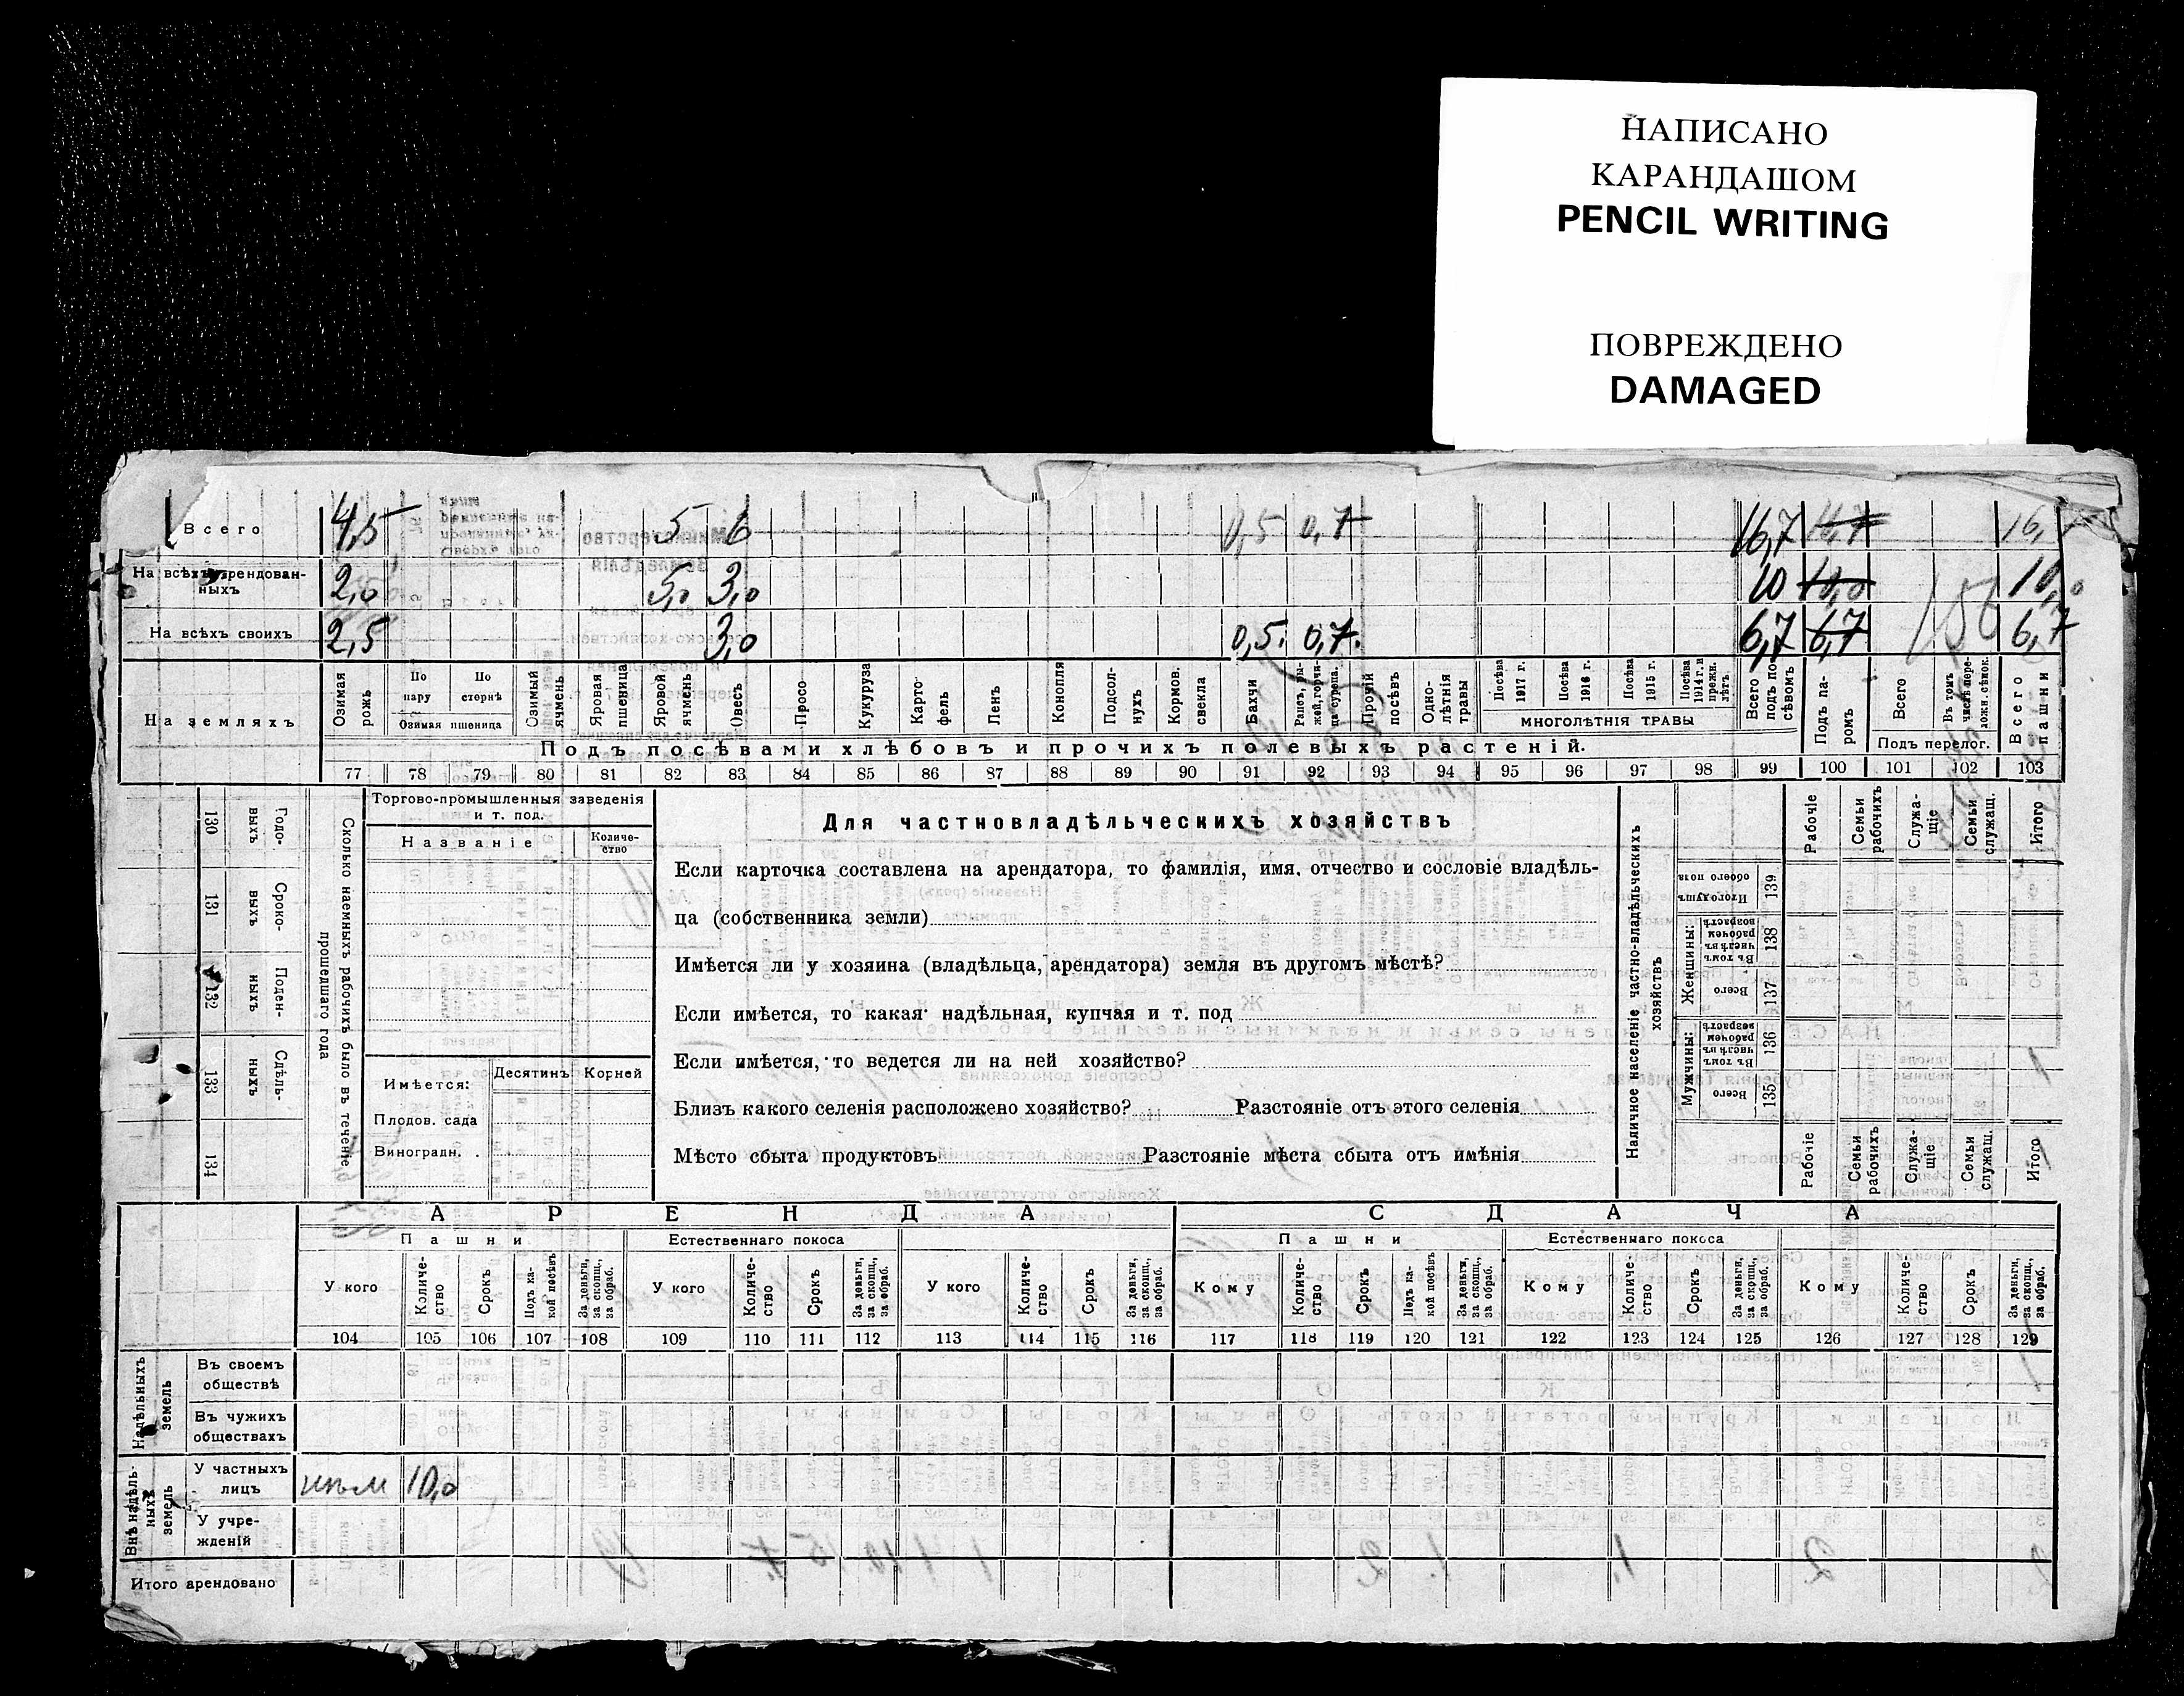 НАПИСАНО
КАРАНДАШОМ
PENCIL WRITING
ПОВРЕЖДЕНО
DAMAGED
Всего 4,5 5 6 0,5 0,7 16,7 16,7 16,7
На всѣхъ арендован-ныхъ 2,0 5,0 3,0 10 10,0 10,0
На всѣхъ своихъ 2,5 3,0 0,5. 0,7. 6,7 6,7 6,7
На земляхъ
Озимая рожь
По пару
По стернѣ
Озимая пшеница
Озимый ячмень
Яровая пшеница
Яровой ячмень
Овесъ
Просо
Кукуруза
Карто-фель
Ленъ
Конопля
Подсол-нухъ
Кормов. свекла
Бахчи
Рапсъ, ры-жей, горчи-ца сурепа.
Прочій посѣвъ
Одно-лѣтнія травы
Посѣва 1917 г.
Посѣва 1916 г.
Посѣва 1915 г.
Посѣва 1914 г. и прежн. лѣтъ.
МНОГОЛѢТНІЯ ТРАВЫ
Всего подъ по-сѣвомъ
Подъ па-ромъ
Всего
Въ томъ числѣ пере-ложн. сѣнок.
Подъ перелог.
Всего пашни
Подъ посѣвами хлѣбовъ и прочихъ полевыхъ растеній.
77 78 79 80 81 82 83 84 85 86 87 88 89 90 91 92 93 94 95 96 97 98 99 100 101 102 103
Сколько наемныхъ рабочихъ было въ теченіе прошедшаго года
130 Годо-выхъ
131 Сроко-выхъ
132 Поден-ныхъ
133 Сдѣль-ныхъ
134
Торгово-промышленныя заведенія
и т. под.
Названіе Количе-ство
Имѣется: Десятинъ Корней
Плодов. сада
Виноградн. .
Для частновладѣльческихъ хозяйствъ
Если карточка составлена на арендатора, то фамилія, имя, отчество и сословіе владѣль-
ца (собственника земли)
Имѣется ли у хозяина (владѣльца, арендатора) земля въ другомъ мѣстѣ?
Если имѣется, то какая: надѣльная, купчая и т. под
Если имѣется, то ведется ли на ней хозяйство?
Близъ какого селенія расположено хозяйство? Разстояніе отъ этого селенія
Мѣсто сбыта продуктовъ Разстояніе мѣста сбыта отъ имѣнія
Наличное население частно-владѣльческихъ хозяйствъ
Рабочіе
Семьи рабочихъ
Служа-щіе
Семьи служащ.
Итого
Итого душъ обоего пола 139
Женщины:
Въ томъ числѣ въ рабочем возрастѣ 138
Всего 137
Мужчины:
Въ томъ числѣ въ рабочем возрастѣ 136
Всего 135
Рабочіе
Семьи рабочихъ
Служа-щіе
Семьи служащ.
Итого
АРЕНДА СДАЧА
Пашни Естественнаго покоса Пашни Естественнаго покоса
У кого Количе-ство Срокъ Подъ ка-кой посѣвъ За деньги, за скопщ., за обраб. У кого Количе-ство Срокъ За деньги, за скопщ., за обраб. У кого Количе-ство Срокъ За деньги, за скопщ., за обраб. Кому Количе-ство Срокъ Подъ ка-кой посѣвъ За деньги, за скопщ., за обраб. Кому Количе-ство Срокъ За деньги, за скопщ., за обраб. Кому Количе-ство Срокъ За деньги, за скопщ., за обраб.
104 105 106 107 108 109 110 111 112 113 114 115 116 117 118 119 120 121 122 123 124 125 126 127 128 129
Надѣльныхъ земель
Въ своемъ
обществѣ
Въ чужихъ
обществахъ
Внѣ надѣль-ныхъ земель
У частныхъ
лицъ 10,0
У учре-
жденій
Итого арендовано